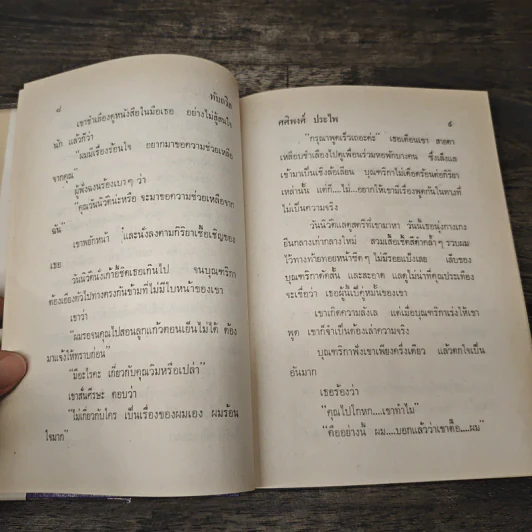 ๘
ทับถวิล
เขาชำเลืองดูหนังสือในมือเธอ อย่างไม่สู้สนใจ
นัก แล้วก็ว่า
"ผมมีเรื่องร้อนใจ อยากมาขอความช่วยเหลือ
จากคุณ"
ผู้ฟังฉงนร้องเบาๆ ว่า
"คุณวันนิวัตินะหรือ จะมาขอความช่วยเหลือจาก
ฉัน"
เขาพยักหน้า และนั่งลงตามกิริยาเชื้อเชิญของ
เธอ
วันนิวัตินั่งเก้าอี้ชิดเธอเกินไป จนบุณฑริกา
ต้องเอียงตัวไปทางตรงกันข้ามที่ไม่มีใบหน้าของเขา
เขาว่า
"ผมรอจนคุณไปสอนลูกแก้วตอนเย็นไม่ได้ ต้อง
มาแจ้งให้ทราบก่อน"
"มีอะไรคะ เกี่ยวกับคุณวัมหรือเปล่า"
เขาสั่นศีรษะ ตอบว่า
"ไม่เกี่ยวกับใคร เป็นเรื่องของผมเอง ผมร้อน
ใจมาก"
ศศิพงศ์ ประไพ
๙
"กรุณาพูดเร็วเถอะค่ะ" เธอเตือนเขา สายตา
เหลือบชำเลืองไปดูเพื่อนร่วมหอพักบางคน ซึ่งเดินแล
เข้ามาเป็นเชิงล้อเลียน บุณฑริกาไม่เดือดร้อนต่อกิริยา
เหล่านั้น แต่ก็....ไม่....อยากให้เขามีเรื่องพูดกันในทางที่
ไม่เป็นความจริง
วันนิวัติแลดูสตรีที่เขามาหา วันนี้เธอนุ่งกางเกง
ยีนกลางเก่ากลางใหม่ สวมเสื้อเชิ้ตสีดำคล้ำๆ รวบผม
ไว้ทางท้ายทอยหน้าซีดๆ ไม่มีรอยแป้งเลย เล็บของ
บุณฑริกาตัดสั้น และสะอาด แลดูไม่น่าที่คุณประเดือง
จะเชื่อว่า เธอผู้นี้เป็นคู่หมั้นของเขา
เขาเกิดความลังเล แต่เมื่อบุณฑริกาเร่งให้เขา
พูด เขาก็จำเป็นต้องเล่าความจริง
บุณฑริกาฟังเขาเพียงครึ่งเดียว แล้วตกใจเป็น
อันมาก
เธอร้องว่า
"คุณไปโกหก....เขาทำไม"
"คืออย่างนี้ ผม....บอกแล้วว่าเขาคือ....ผม"